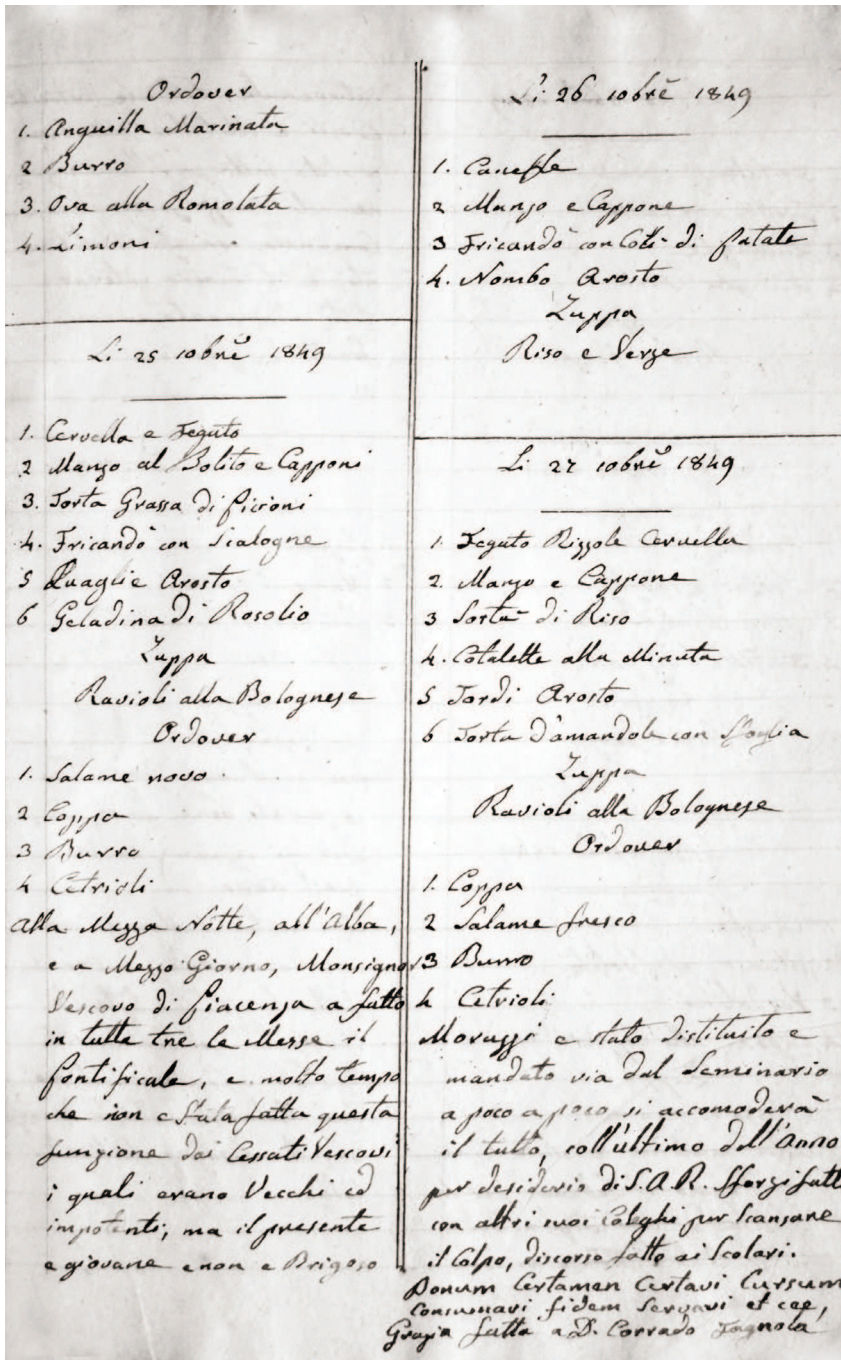 Ordover
1. Anguilla Marinata
2 Burro
3. Ova alla Romolata
4. Limoni
Li 25 10brē 1849
1. Cervella e Feguto
2 Manzo al Bolito e Capponi
3. Torta Grassa di piccioni
4. Fricandò con Scalogne
5 Quaglie Arosto
6 Geladina di Rosolio
Zuppa
Ravioli alla Bolognese
Ordover
1. Salame novo
2 Coppa
3 Burro
4 Cetrioli
Alla Mezza Notte, all'Alba,
e a Mezzo Giorno, Monsignor
Vescovo di Piacenza a fatto
in tutte tre le Messe il
pontificale, e molto tempo
che non e stata fatta questa
funzione dai Cessati Vescovi
i quali erano Vecchi ed
impotenti; ma il presente
e giovane e non e Brigoso
Li 26 10brē 1849
1. Caneffe
2 Manzo e Cappone
3 Fricandò con Coli di patate
4. Nombo Arosto
Zuppa
Riso e Verze
Li 27 10brē 1849
1. Feguto Rizzole Cervella
2. Manzo e Cappone
3 Sortù di Riso
4. Cotalette alla Minuta
5 Tordi Arosto
6 Torta d'amandole con Sfoglia
Zuppa
Ravioli alla Bolognese
Ordover
1. Coppa
2 Salame fresco
3 Burro
4 Cetrioli
Moruzzi e stato distituito e
mandato via dal Seminario
a poco a poco si accomoderà
il tutto, coll'ultimo dell'Anno
per desiderio di S.A.R. Sforzi fatti
con altri suoi Coleghi per Scansare
il Colpo, discorso fatto ai Scolari.
Bonum Certamen Certavi Cursum
Consumavi fidem Servavi et cee,
Grazia fatta a D. Corrado Fagnola